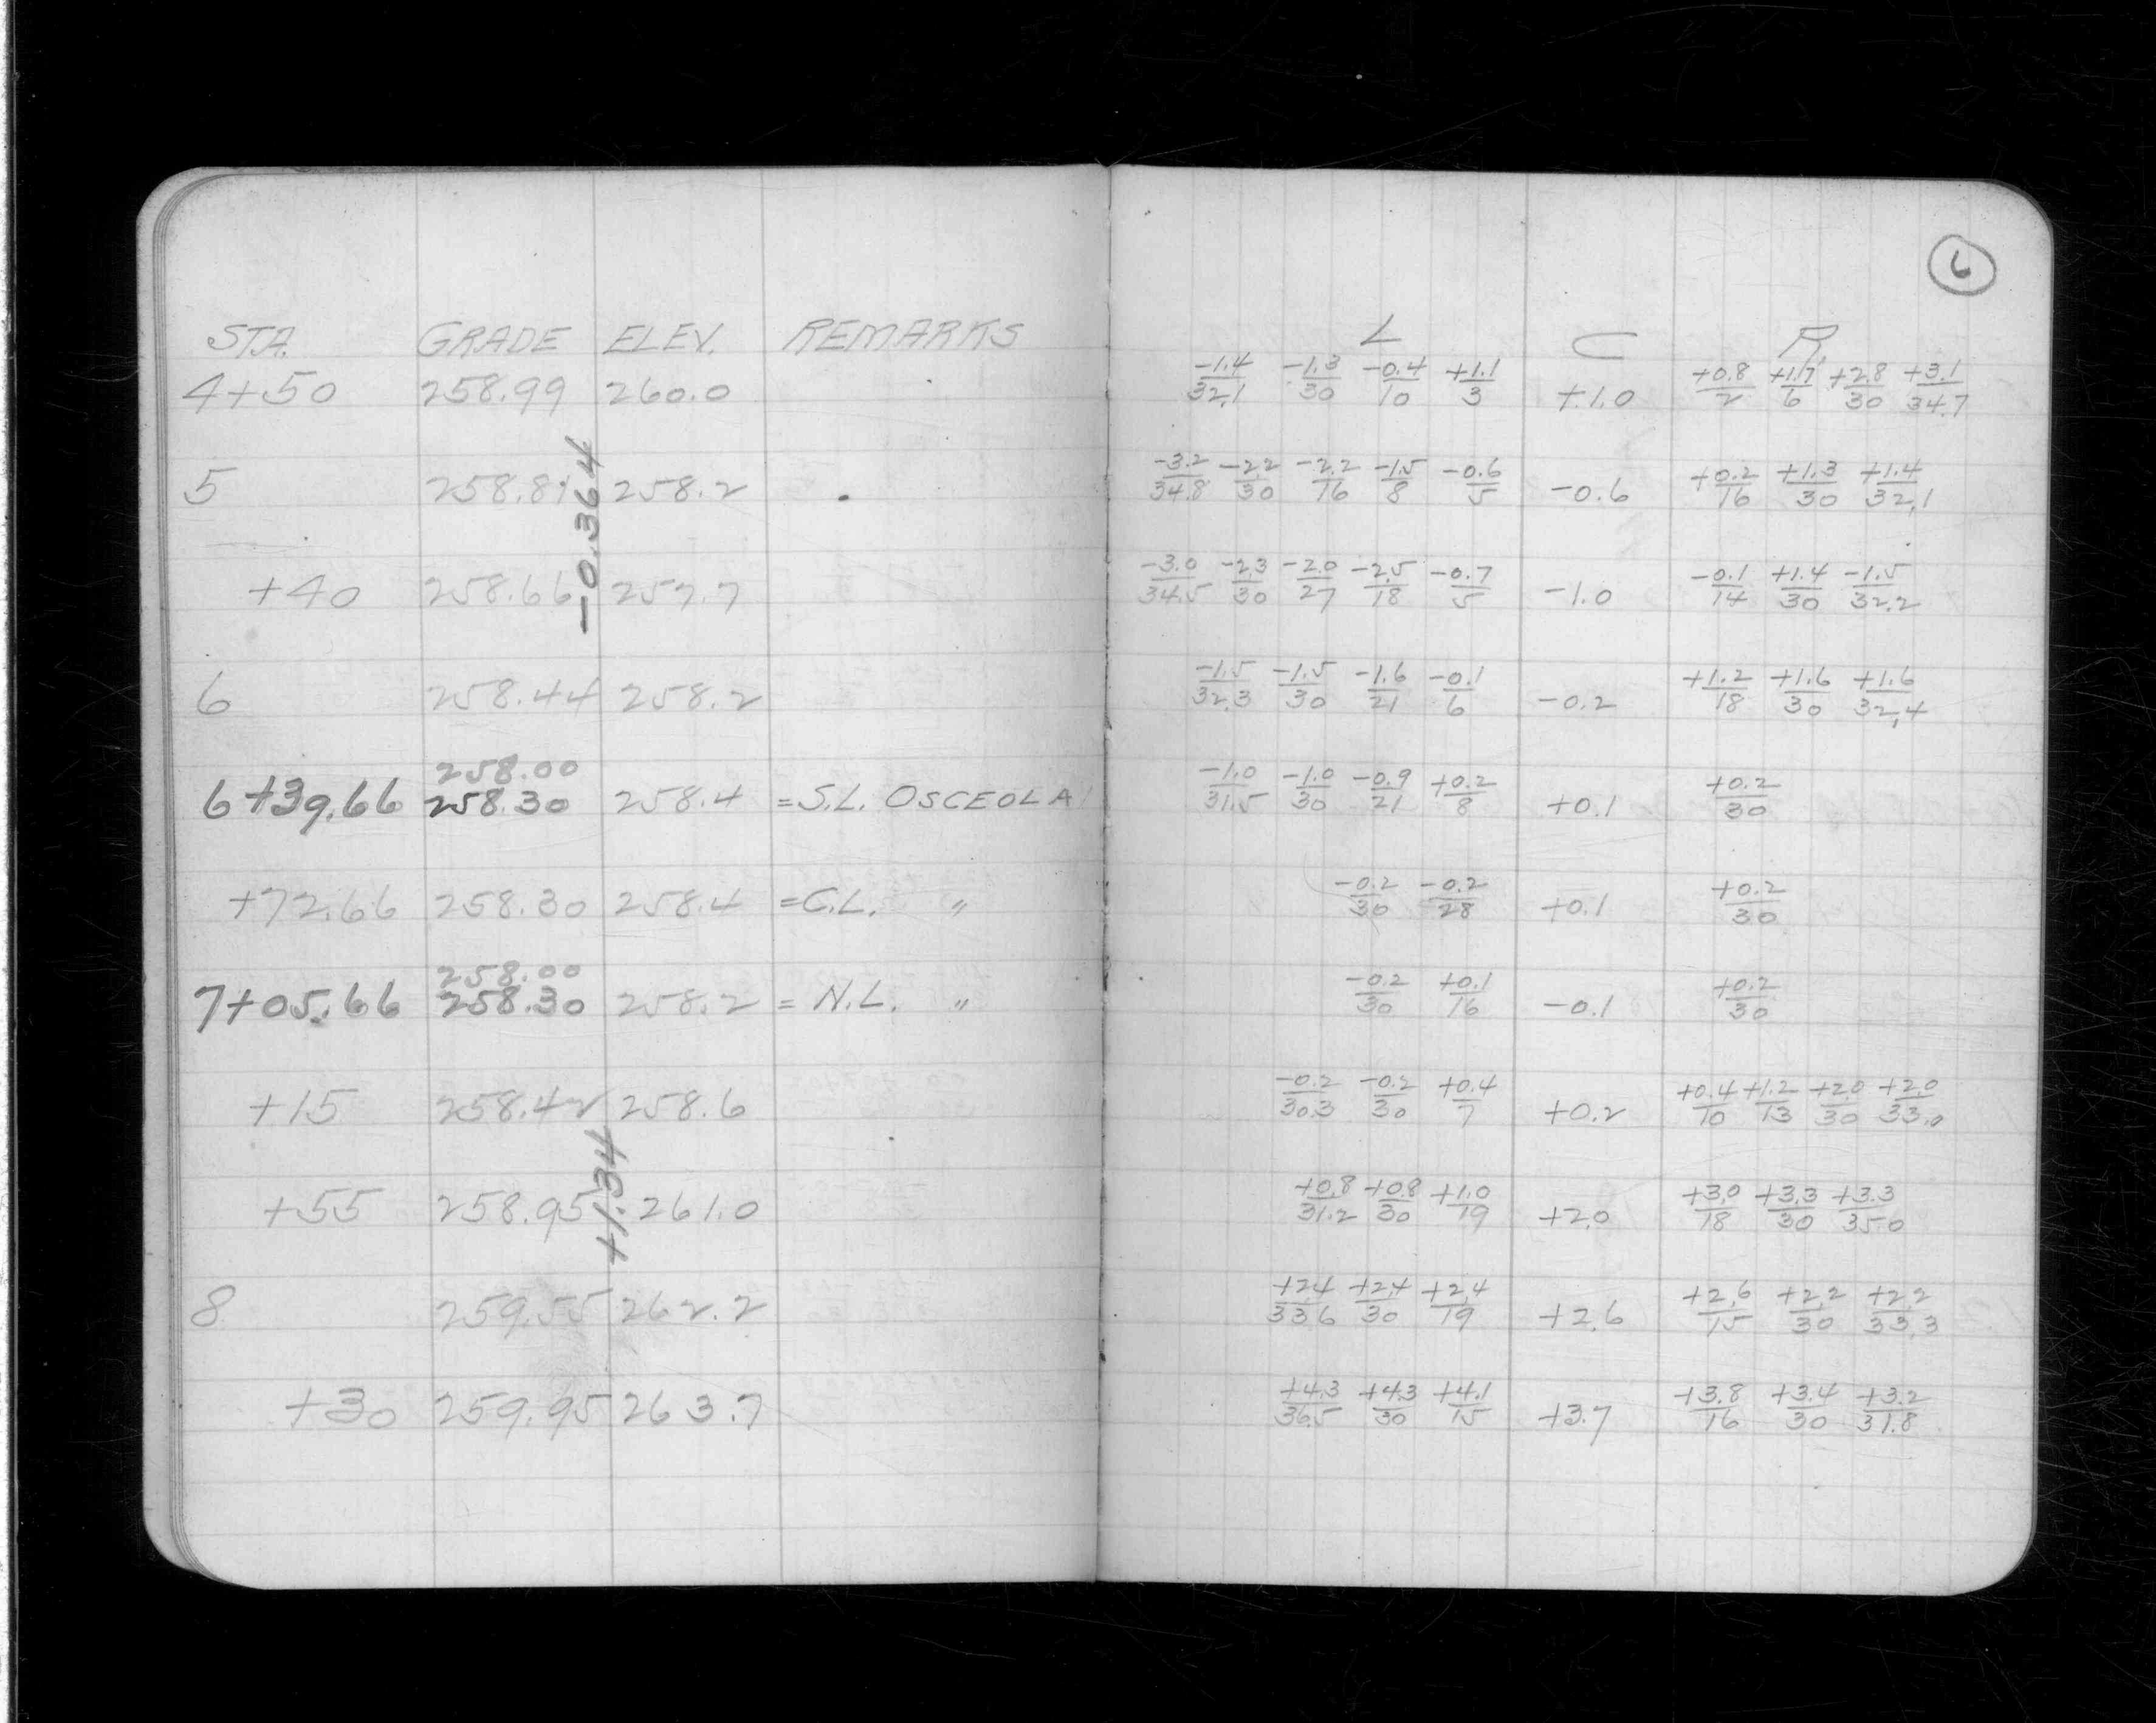 6
STA. GRADE ELEV. REMARKS L C R
4+50 258.99 260.0 -1.4/32.1 -1.3/30 -0.4/10 +1.1/3 +1.0 +0.8/2 +1.7/6 +2.8/30 +3.1/34.7
5 258.81 258.2 -3.2/34.8 -2.2/30 -2.2/16 -1.5/8 -0.6/5 -0.6 +0.2/16 +1.3/30 +1.4/32.1
-0.364
+40 258.66 257.7 -3.0/34.5 -2.3/30 -2.0/27 -2.5/18 -0.7/5 -1.0 -0.1/14 +1.4/30 -1.5/32.2
6 258.44 258.2 -1.5/32.3 -1.5/30 -1.6/21 -0.1/6 -0.2 +1.2/18 +1.6/30 +1.6/32.4
258.00
6+39.66 258.30 258.4 =S.L. OSCEOLA -1.0/31.5 -1.0/30 -0.9/21 +0.2/8 +0.1 +0.2/30
+72.66 258.30 258.4 =C.L. " -0.2/30 -0.2/28 +0.1 +0.2/30
258.00
7+05.66 258.30 258.2 = N.L. " -0.2/30 +0.1/16 -0.1 +0.2/30
+15 258.42 258.6 -0.2/30.3 -0.2/30 +0.4/7 +0.2 +0.4/10 +1.2/13 +2.0/30 +2.0/33.0
+1.34
+55 258.95 261.0 +0.8/31.2 +0.8/30 +1.0/19 +2.0 +3.0/18 +3.3/30 +3.3/35.0
8 259.55 262.2 +2.4/33.6 +2.4/30 +2.4/19 +2.6 +2.6/15 +2.2/30 +2.2/33.3
+30 259.95 263.7 +4.3/36.5 +4.3/30 +4.1/15 +3.7 +3.8/16 +3.4/30 +3.2/31.8